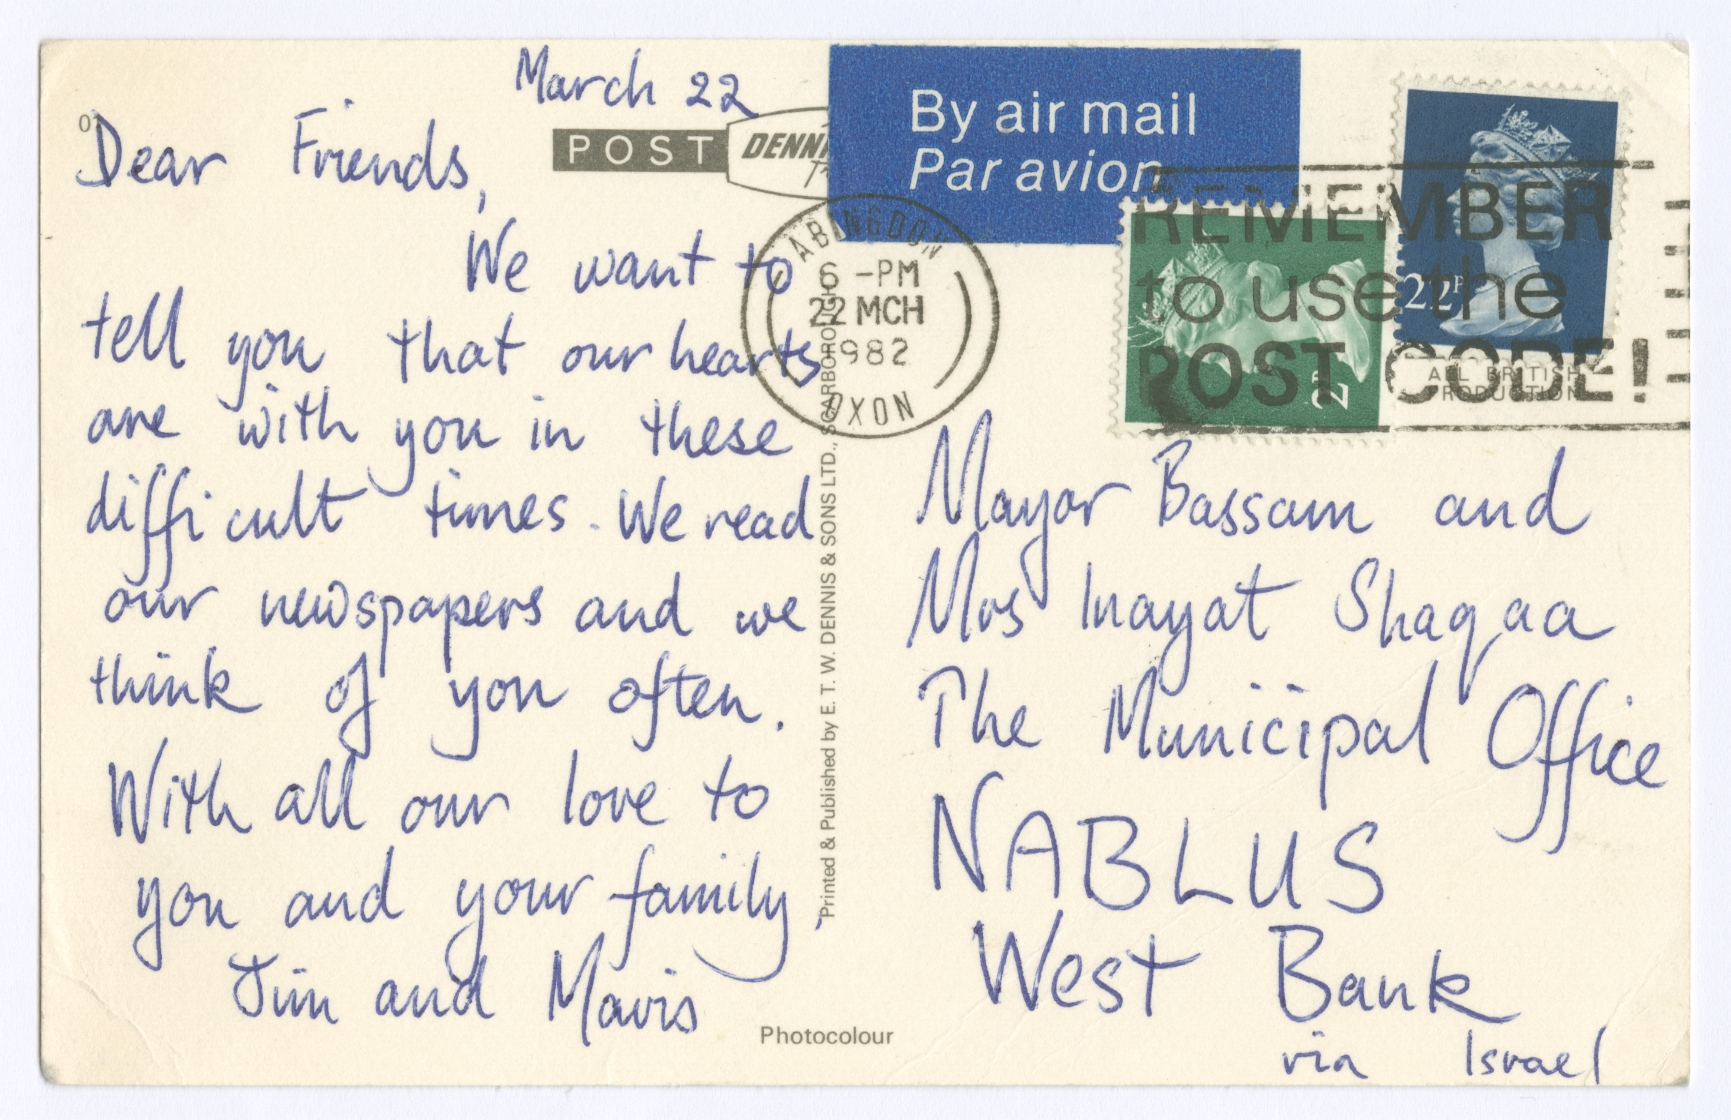 March 22
Dear Friends,
We want to
tell you that our hearts
are with you in these
difficult times. We read
our newspapers and we
think of you often.
With all our love to
you and your family,
Jim and Mavis
POST
DENN
By air mail
Par avion
ABINGDON
6 -PM
22 MCH
1982
OXON
REMEMBER
to use the
POST CODE!
22P
2P
ALL BRITISH
PRODUCTION
Mayor Bassam and
Mrs Inayat Shaqaa
The Municipal Office
NABLUS
West Bank
via Israel
Printed & Published by E. T. W. DENNIS & SONS LTD., SCARBOROUGH
Photocolour